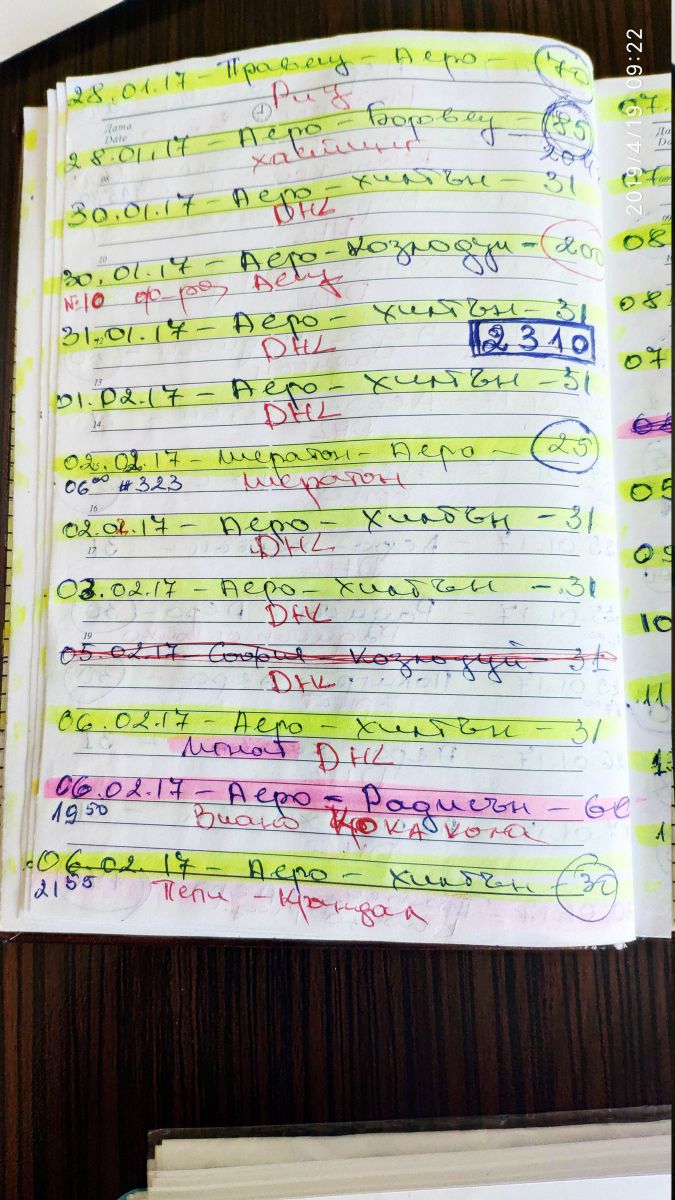 28.01.17 - Правец - Аеро - 70
Риц
Дата
Date
28.01.17 - Аеро - Боровец - 85
204.
Хаятинг
30.01.17 - Аеро - Хилтън - 31
DHL
30.01.17 - Аеро - Козлодуй - 200
№10 ф-ра,
31.01.17 - Аеро - Хилтън - 31
DHL
2310
01.02.17 - Аеро - Хилтън - 31
DHL
02.02.17 - Шератон - Аеро - 25
0600 #323 Шератон
02.02.17 - Аеро - Хилтън - 31
DHL
03.02.17 - Аеро - Хилтън - 31
DHL
05.02.17 София - Козлодуй - 31
DHL
06.02.17 - Аеро - Хилтън - 31
DHL
06.02.17 - Аеро - Радисън - 60
1950 Виано Кока кола
06.02.17 - Аеро - Хилтън - 30
2155 Пепи - Крандал
2019/4/19 09:22